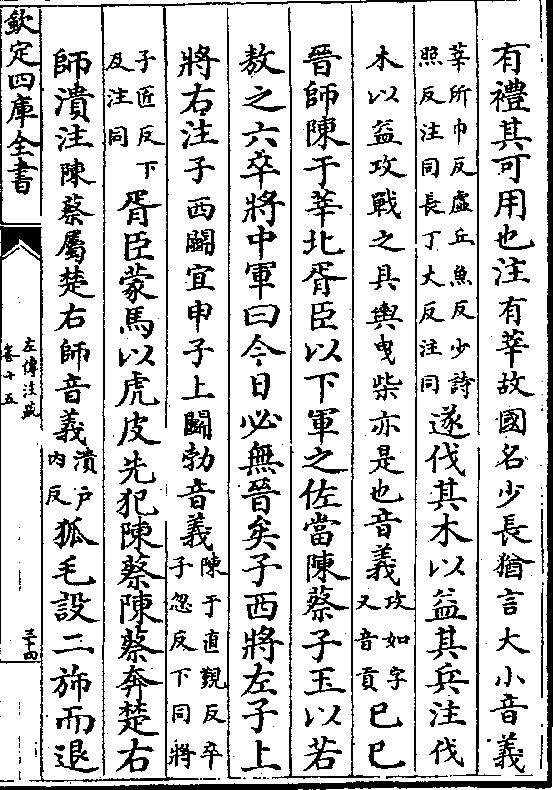 有禮其可用也注有莘故國名少長猶言大小音義
莘所巾反虛丘魚反少詩
照反注同長丁大反注同
遂伐其木以益其兵注伐
木以益攻戰之具輿曳柴亦是也音義
攻如字
又音貢
己巳
晉師陳于莘北胥臣以下軍之佐當陳蔡子玉以若
敖之六卒將中軍曰今日必無晉矣子西將左子上
將右注子西鬬宜申子上鬬勃音義
陳于直覲反卒
子忽反下同將
子匠反下
反注同
胥臣蒙馬以虎皮先犯陳蔡陳蔡奔楚右
師潰注陳蔡屬楚右師音義
潰戶
內反
狐毛設二斾而退
欽定四庫全書
左傳注疏
卷十五
三十四